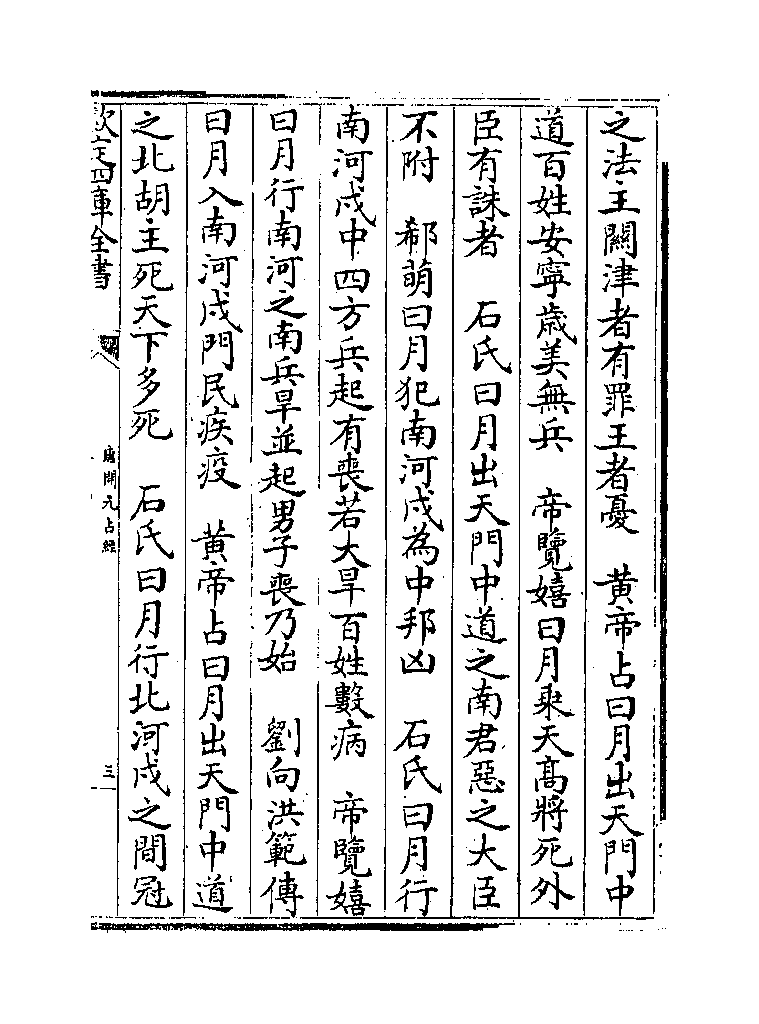 之法主闗津者有罪王者憂　黄帝占曰月出天門中
道百姓安寧歳美無兵　帝覽嬉曰月乘天髙將死外
臣有誅者　石氏曰月出天門中道之南君惡之大臣
不附　郗萌曰月犯南河戍為中邦凶　石氏曰月行
南河戍中四方兵起有喪若大旱百姓數病　帝覽嬉
曰月行南河之南兵旱並起男子喪乃始　劉向洪範傳
曰月入南河戍門民疾疫　黄帝占曰月出天門中道
之北胡主死天下多死　石氏曰月行北河戍之間冠
欽定四庫全書
唐開元占經
三